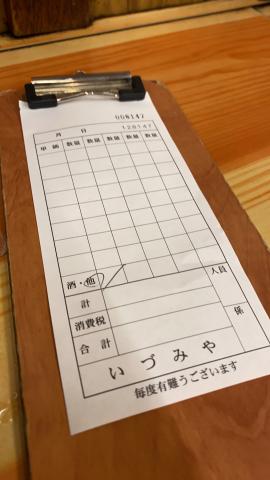 008147
月 日 128147
単価 数量 数量 数量 数量 数量
酒・他
人員
計
消費税
係
合計
いづみや
毎度有難うございます